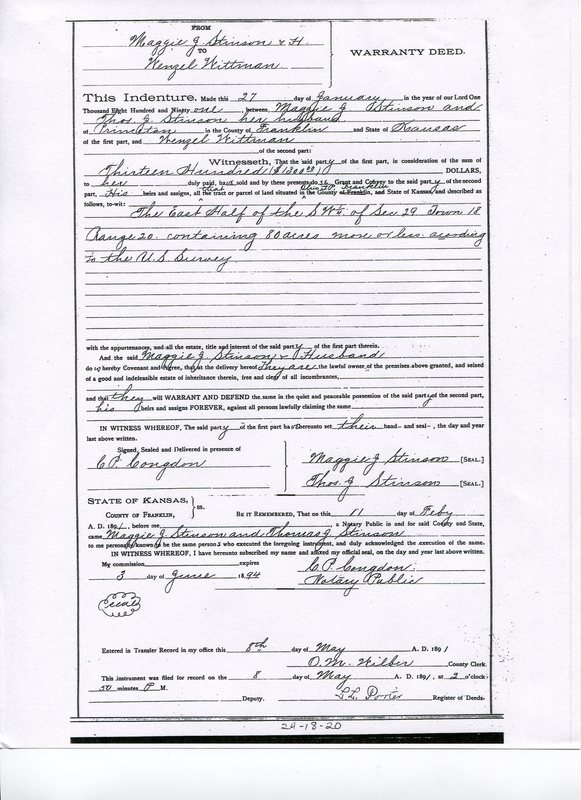 FROM
Maggie J Stinson & H.
TO
Wenzel Wittman
WARRANTY DEED.
This Indenture, Made this 27 day of January in the year of our Lord One
Thousand Eight Hundred and Ninety one, between Maggie J Stinson and
Thos J Stinson her husband
of Princeton in the County of Franklin and State of Kansas
of the first part, and Wenzel Wittman
of the second part:
Witnesseth, That the said party of the first part, in consideration of the sum of
Thirteen Hundred ($1300 00) DOLLARS,
to her duly paid, has sold and by these presents do es Grant and Convey to the said party of the second
part, His heirs and assigns, all that tract or parcel of land situated in the County of Franklin, and State of Kansas, and described as
follows, to-wit:
The East Half of the SW¼ of Sec 29 Town 18
Range 20. containing 80 acres more or less acording
to the U.S. Survey
with the appurtenances, and all the estate, title and interest of the said party of the first part therein.
And the said Maggie J Stinson & Husband
do hereby Covenant and Agree, that at the delivery hereof They are the lawful owner of the premises above granted, and seized
of a good and indefeasible estate of inheritance therein, free and clear of all incumbrances,
and that they will WARRANT AND DEFEND the same in the quiet and peaceable possession of the said party of the second part,
his heirs and assigns FOREVER, against all persons lawfully claiming the same
IN WITNESS WHEREOF, The said party of the first part has hereunto set their hand and seal, the day and year
last above written.
Signed, Sealed and Delivered in presence of
C.P. Congdon
Maggie J Stinson [SEAL.]
Thos. J Stinson [SEAL.]
STATE OF KANSAS,
COUNTY OF FRANKLIN, } ss.
BE IT REMEMBERED, That on this 11 day of Feby
A. D. 1891, before me, a Notary Public in and for said County and State,
came Maggie J Stinson and Thomas J Stinson
to me personally known to be the same persons who executed the foregoing instrument, and duly acknowledged the execution of the same.
IN WITNESS WHEREOF, I have hereunto subscribed my name and affixed my official seal, on the day and year last above written.
My commission expires
3 day of June 1894
C.P. Congdon
Notary Public
Seal
Entered in Transfer Record in my office this 8th day of May A. D. 1891
O.M. Wilber County Clerk.
This instrument was filed for record on the 8 day of May A. D. 1891, at 2 o'clock
50 minutes P M.
Deputy. L.L. Porter Register of Deeds.
29-18-20